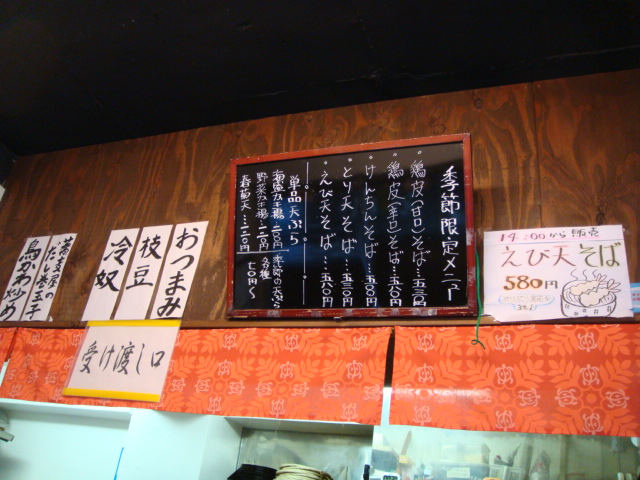 季節限定メニュー
鶏皮(甘口)そば…五三〇円
鶏皮(辛口)そば…五六〇円
けんちんそば…五八〇円
とり天そば…五三〇円
えび天そば…五八〇円
単品天ぷら
海鮮かき揚
野菜かき揚…一二〇円
春菊天…一二〇円
14:00から販売
えび天そば
580円
おつまみ
枝豆
冷奴
蕎麦屋の
だし巻玉子
鳥かわ炒め
受け渡し口